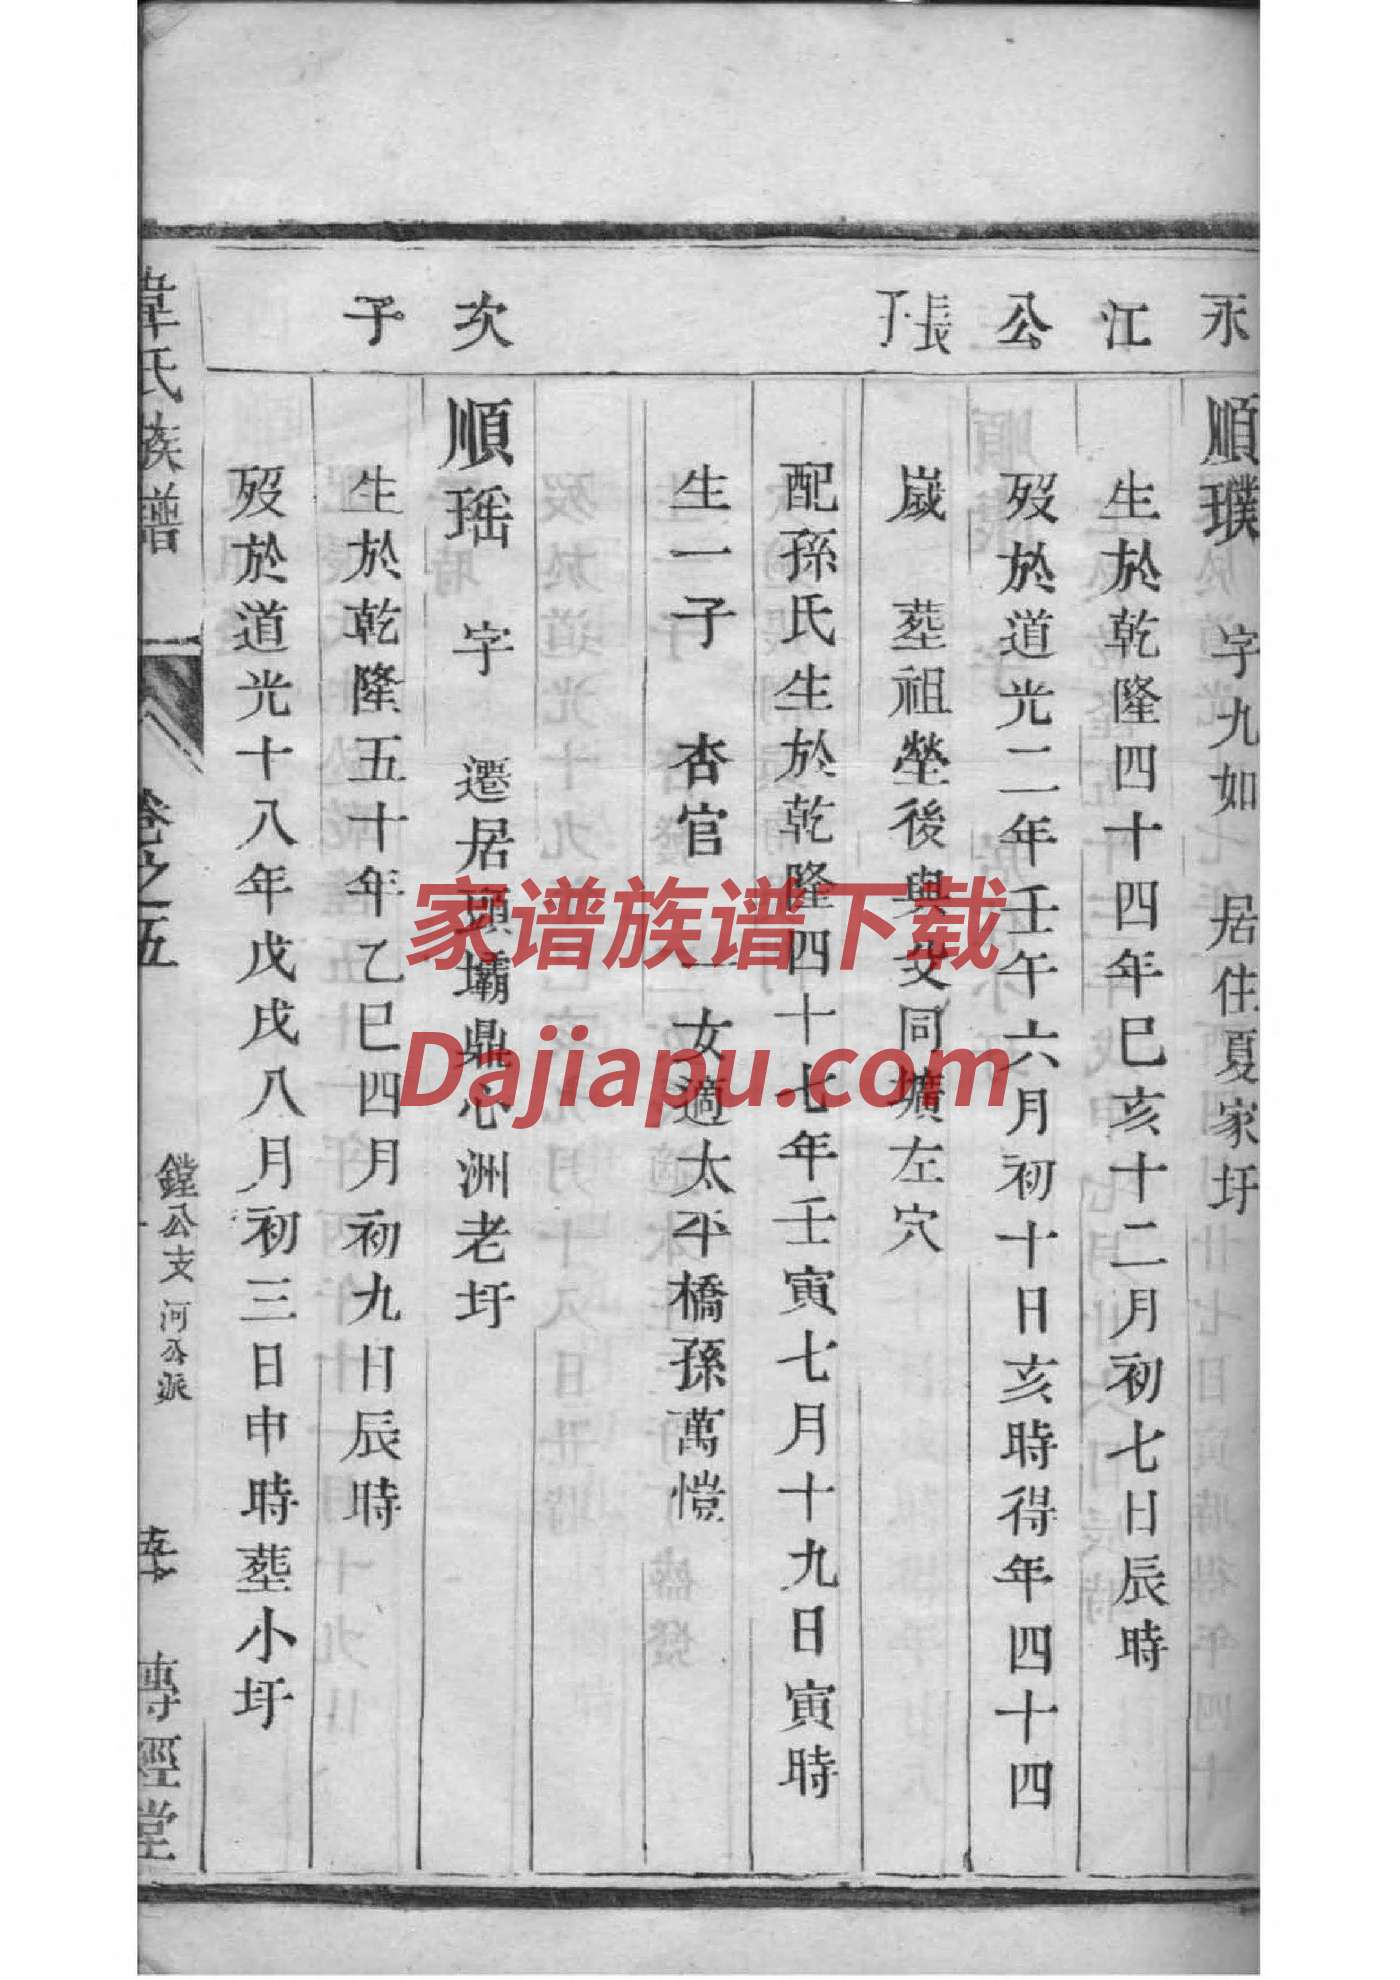 永江公長子
順璞　字九如　居住夏家圩
生於乾隆四十四年巳亥十二月初七日辰時
歿於道光二年壬午六月初十日亥時得年四十四
歲　葬祖塋後與父同壙左穴
配孫氏生於乾隆四十七年壬寅七月十九日寅時
生一子　杏官　一女適太平橋孫萬愷
次子
順瑶　字　遷居頭壩鼎心洲老圩
生於乾隆五十年乙巳四月初九日辰時
歿於道光十八年戊戌八月初三日申時葬小圩
韋氏族譜　卷之五
鏜公支河公派
傳經堂
家谱族谱下载
Dajiapu.com